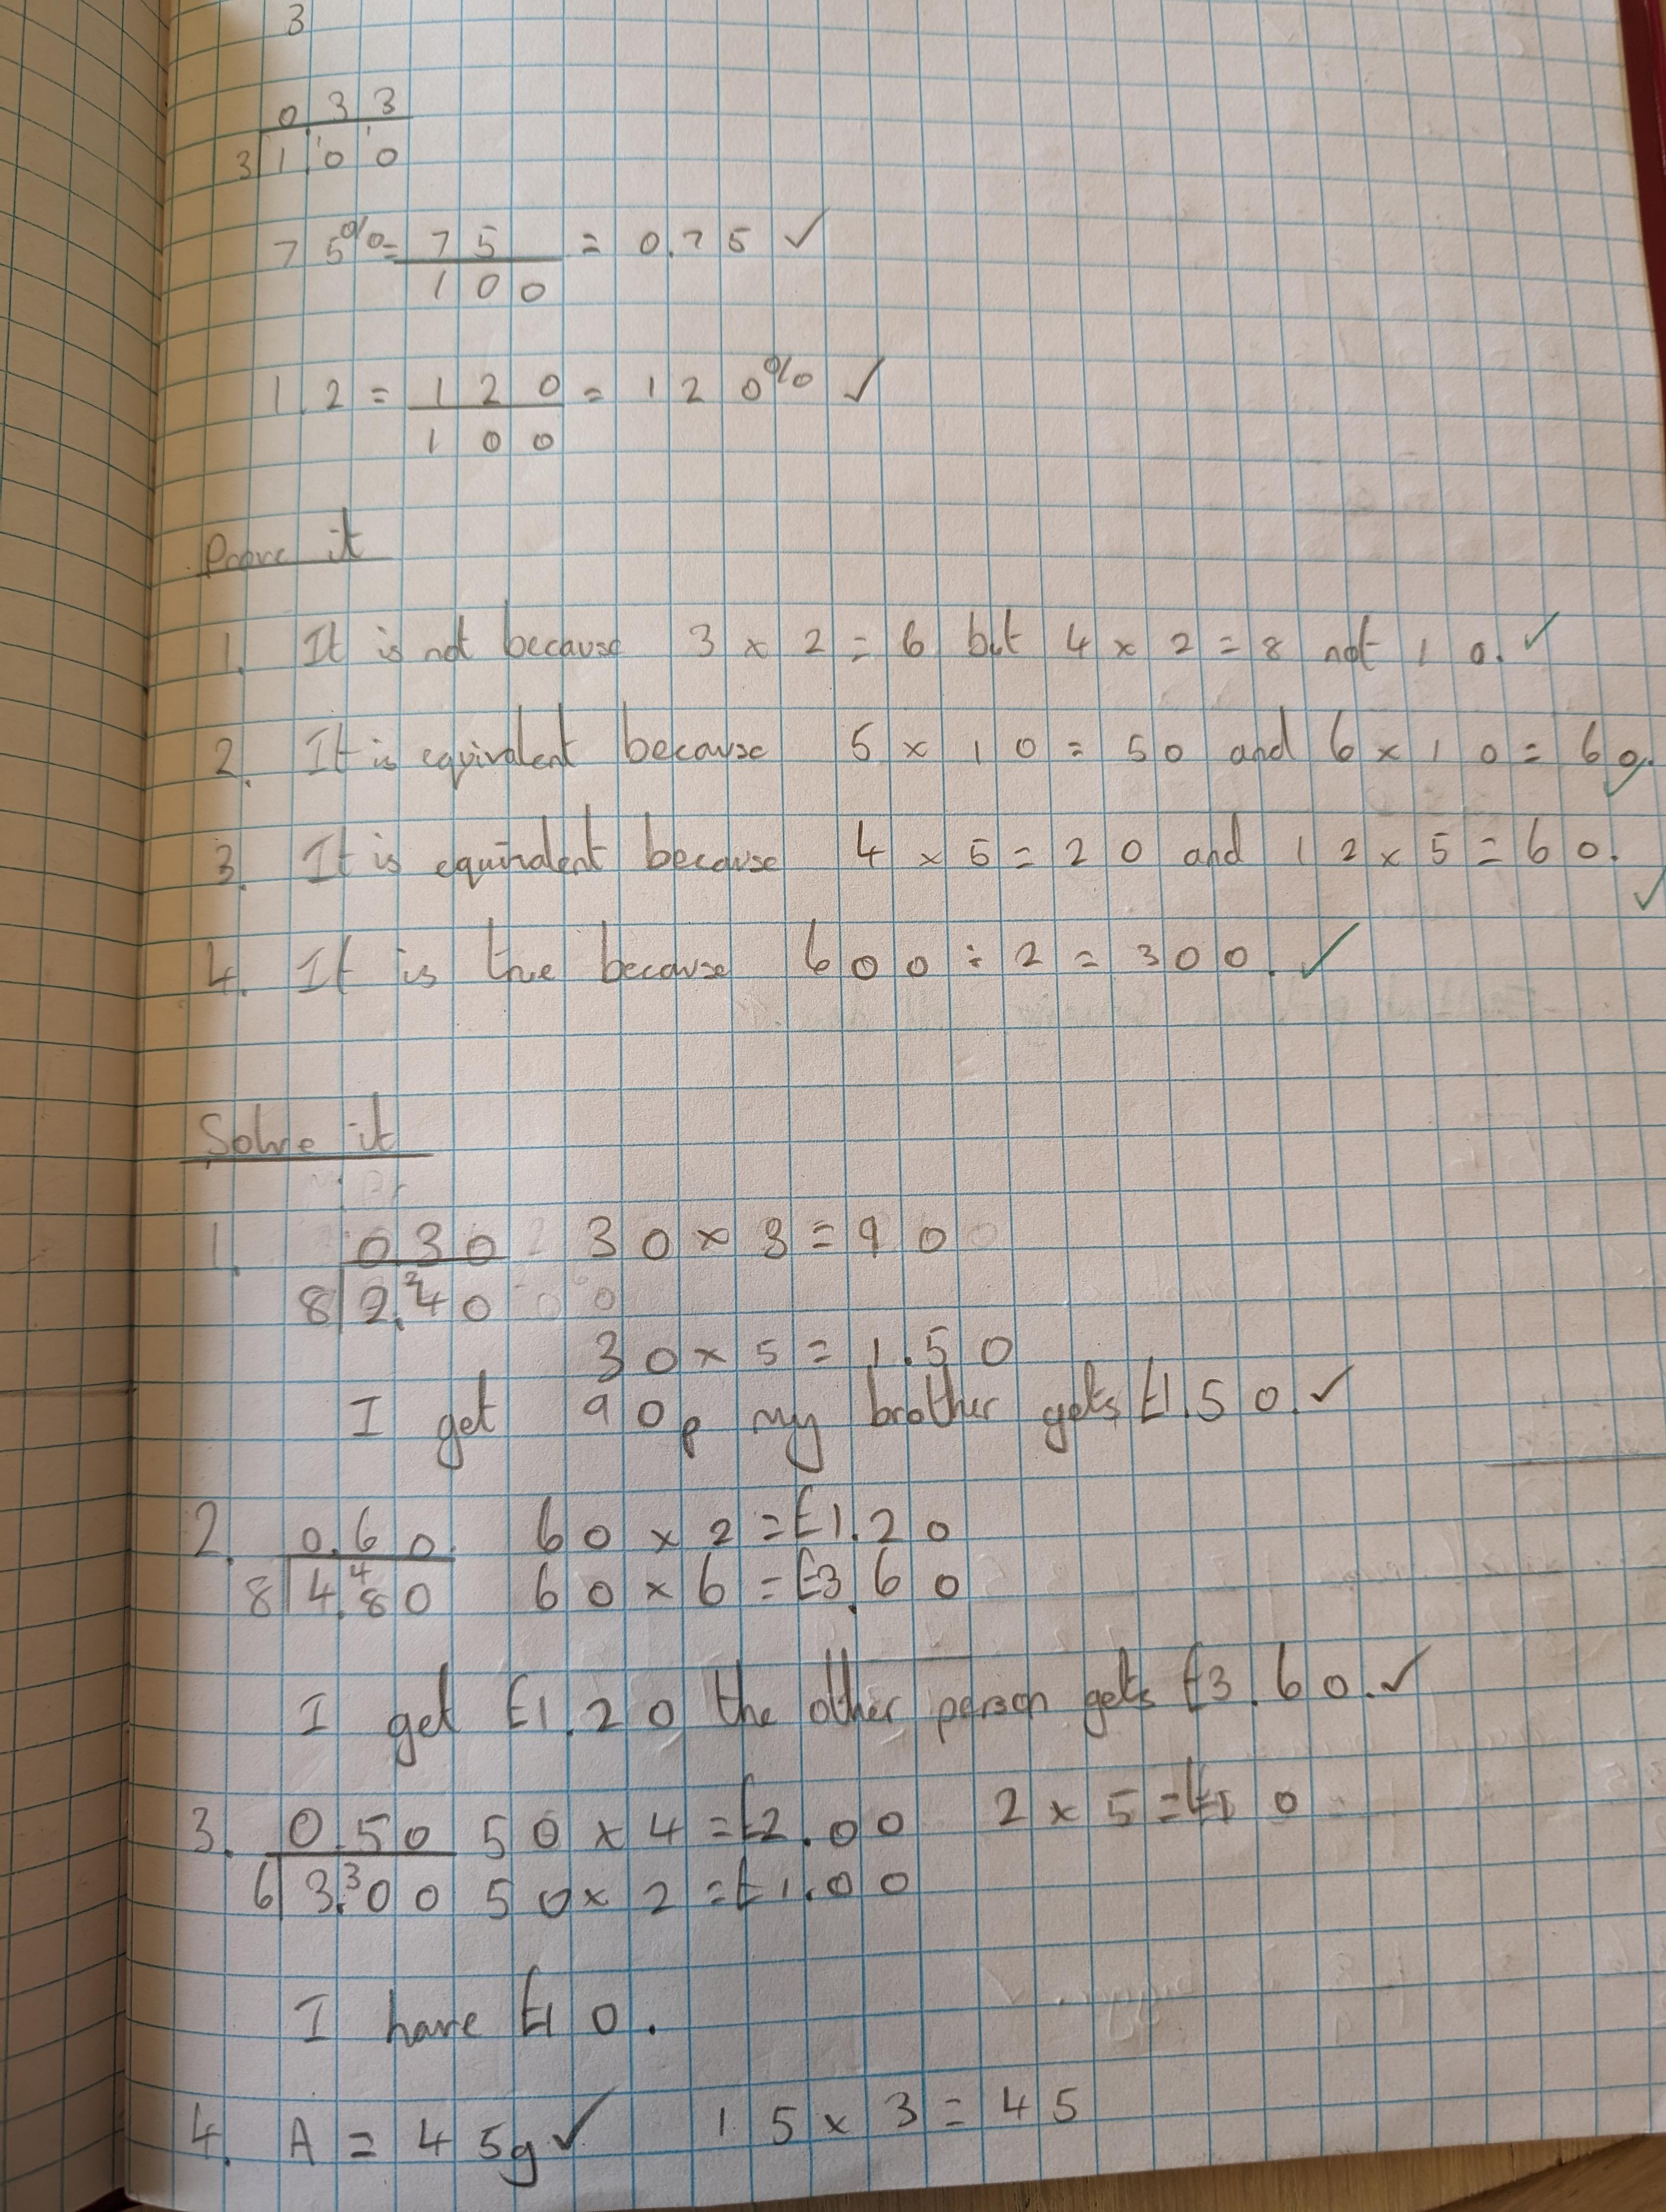 3
0.33
3|1.¹0¹0
75%= 75/100 = 0.75 ✓
1.2 = 120/100 = 120% ✓
Prove it
1. It is not because 3 x 2 = 6 but 4 x 2 = 8 not 10. ✓
2. It is equivalent because 5 x 10 = 50 and 6 x 10 = 60. ✓
3. It is equivalent because 4 x 5 = 20 and 12 x 5 = 60. ✓
4. It is true because 600 ÷ 2 = 300. ✓
Solve it
1. 0.30 30 x 3 = 90
8|2.²40
30 x 5 = 1.50
I get 90p my brother gets £1.50. ✓
2. 0.60 60 x 2 = £1.20
8|4.⁴80 60 x 6 = £3.60
I get £1.20 the other person gets £3.60. ✓
3. 0.50 50 x 4 = £2.00 2 x 5 = £10
6|3.³00 50 x 2 = £1.00
I have £10.
4. A = 45g ✓ 15 x 3 = 45